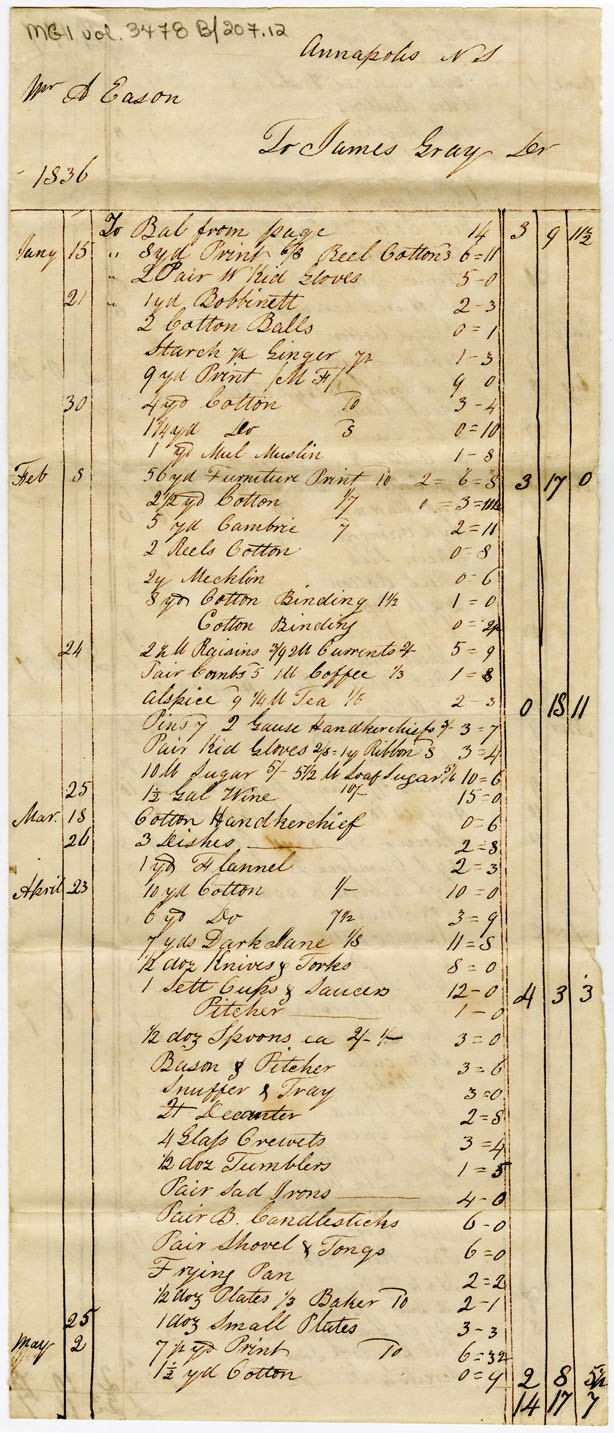 MG1 vol. 3478 B/207.12
Annapolis N S
Mr A Eason
To James Gray Dr
1836
To Bal from page 14 3 9 11½
Jany 15 " 8 yd Print Reel Cotton 3 6=11
" 2 Pair W Kid Gloves 5-0
21 " 1 yd Bobbinett 2-3
2 Cotton Balls 0=1
Starch 7½ Ginger 7½ 1-3
9 yd Print /M F/ 9 0
30 4 yd Cotton 10 3-4
1¼ yd Do 8 0=10
1 yd Mul Muslin 1-8
Feb 8 56 yd Furniture Print 10 2=6=8 3 17 0
2½ yd Cotton 1/7 0=3=11½
5 yd Cambric 7 2=11
2 Reels Cotton 0=8
2y Mecklin 0=6
8 yd Cotton Binding 1½ 1=0
Cotton Binding
24 2½ lb Raisins 2 lb Currents 5=9
Pair Combs 5 1 lb Coffee 1/3 1=8
Alspice 9 ¼ lb Tea 1/6 2-3 0 18 11
Pins 7 2 Gause Handkerchiefs 3/- 3-7
Pair Kid Gloves 2/8=1y Ribbon 8 3=4
10 lb Sugar 5/- 5½ lb Loaf Sugar 5/6 10=6
25 1½ Gal Wine 10/- 15=0
Mar 18 Cotton Handkerchief 0=6
26 3 Dishes 2=8
1 yd Flannel 2=3
April 23 10 yd Cotton 1/- 10=0
6 yd Do 7½ 3=9
7 yds Dark Jane 1/8 11=8
½ doz Knives & Forks 8=0
1 Sett Cups & Saucers 12-0 4 3 3
Pitcher 1-0
½ doz Spoons ea 2/- 1/- 3=0
Bason & Pitcher 3=6
Snuffer & Tray 3=0
Decanter 2=8
4 Glass Crewets 3=4
½ doz Tumblers 1=5
Pair Sad Irons 4-0
Pair B. Candlesticks 6-0
Pair Shovel & Tongs 6=0
Frying Pan 2=2
½ doz Plates 1/3 Baker 10 2-1
25 1 doz Small Plates 3-3
May 2 7½ yd Print 10 6=3½
1½ yd Cotton 0=9 2 8 5½
14 17 7